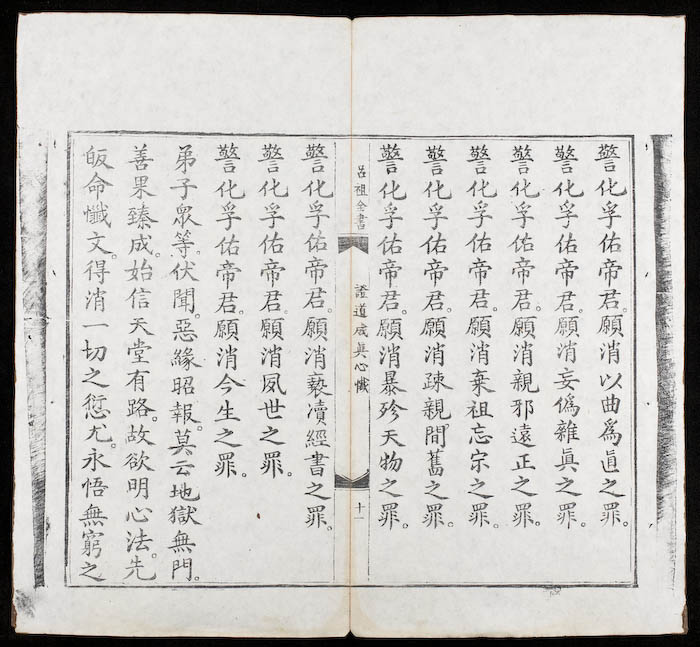 警化孚佑帝君。願消以曲爲直之罪。
警化孚佑帝君。願消妄僞雜眞之罪。
警化孚佑帝君。願消親邪遠正之罪。
警化孚佑帝君。願消棄祖忘宗之罪。
警化孚佑帝君。願消疎親間舊之罪。
警化孚佑帝君。願消暴殄天物之罪。
呂祖全書
證道成眞心懺
十一
警化孚佑帝君。願消褻瀆經書之罪。
警化孚佑帝君。願消夙世之罪。
警化孚佑帝君。願消今生之罪。
弟子眾等。伏聞。惡緣昭報。莫云地獄無門。
善果臻成。始信天堂有路。故欲明心法。先
皈命懺文。得消一切之愆尤。永悟無窮之